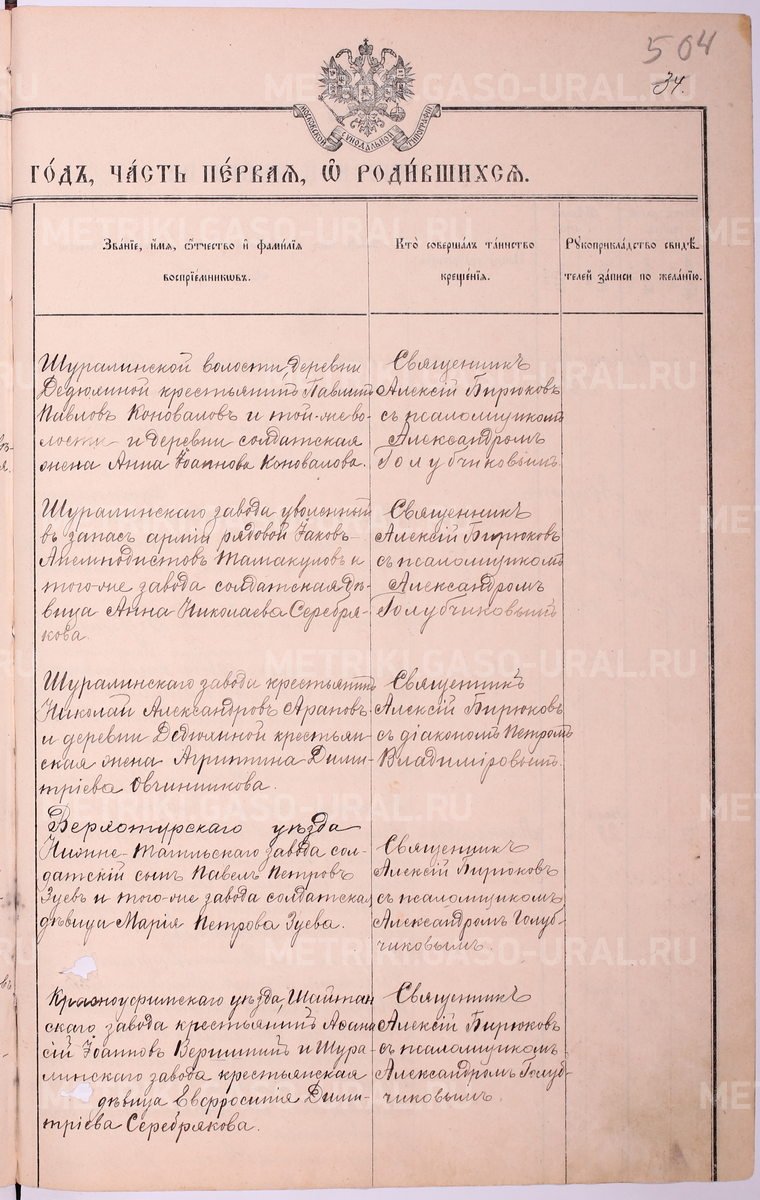 504
34.
МОСКОВСКОЙ СѴНОДАЛЬНОЙ ТИПОГРАФІИ
ГОДЪ, ЧА́СТЬ ПЕ́РВАЯ, Ѿ РОДИ́ВШИХСЯ.
Зва́ніе, и́мя, о́тчество и҆ фами́лія
воспріе́мниковъ.
Кто̀ соверша́лъ та́инство
креще́нія.
Рꙋкоприкла́дство свидѣ́-
телей за́писи по жела́нію.
Шуралинской волости, деревни
Дедюлиной крестьянинъ Павлинъ
Павловъ Коноваловъ и той-же во-
лости и деревни солдатская
жена Анна Іоаннова Коновалова.
Священникъ
Алексій Бирюковъ
съ псаломщикомъ
Александромъ
Голубчиковымъ
Шуралинскаго завода уволенный
въ запасъ арміи рядовой Іаковъ
Акемнодистовъ Тамакуловъ и
того-же завода солдатская дѣ-
вица Анна Николаева Серебря-
кова.
Священникъ
Алексій Бирюковъ
съ псаломщикомъ
Александромъ
Голубчиковымъ
Шуралинскаго завода крестьянинъ
Николай Александровъ Араповъ
и деревни Дедюлиной крестьян-
ская жена Агриппина Дими-
тріева Овчинникова.
Священникъ
Алексій Бирюковъ
съ діакономъ Петромъ
Владиміровымъ.
Верхотурскаго уѣзда
Нижне-Тагильскаго завода сол-
датскій сынъ Павелъ Петровъ
Зуевъ и того-же завода солдатская
дѣвица Марія Петрова Зуева.
Священникъ
Алексій Бирюковъ
съ псаломщикомъ
Александромъ Голуб-
чиковымъ.
Красноуфимскаго уѣзда, Шайтан
скаго завода крестьянинъ Аѳана
сій Іоанновъ и Шура-
линскаго завода крестьянская
дѣвица Евфросинія Дими-
тріева Серебрякова.
Священникъ
Алексій Бирюковъ
съ псаломщикомъ
Александромъ Голуб-
чиковымъ.
METRIKI.GASO-URAL.RU